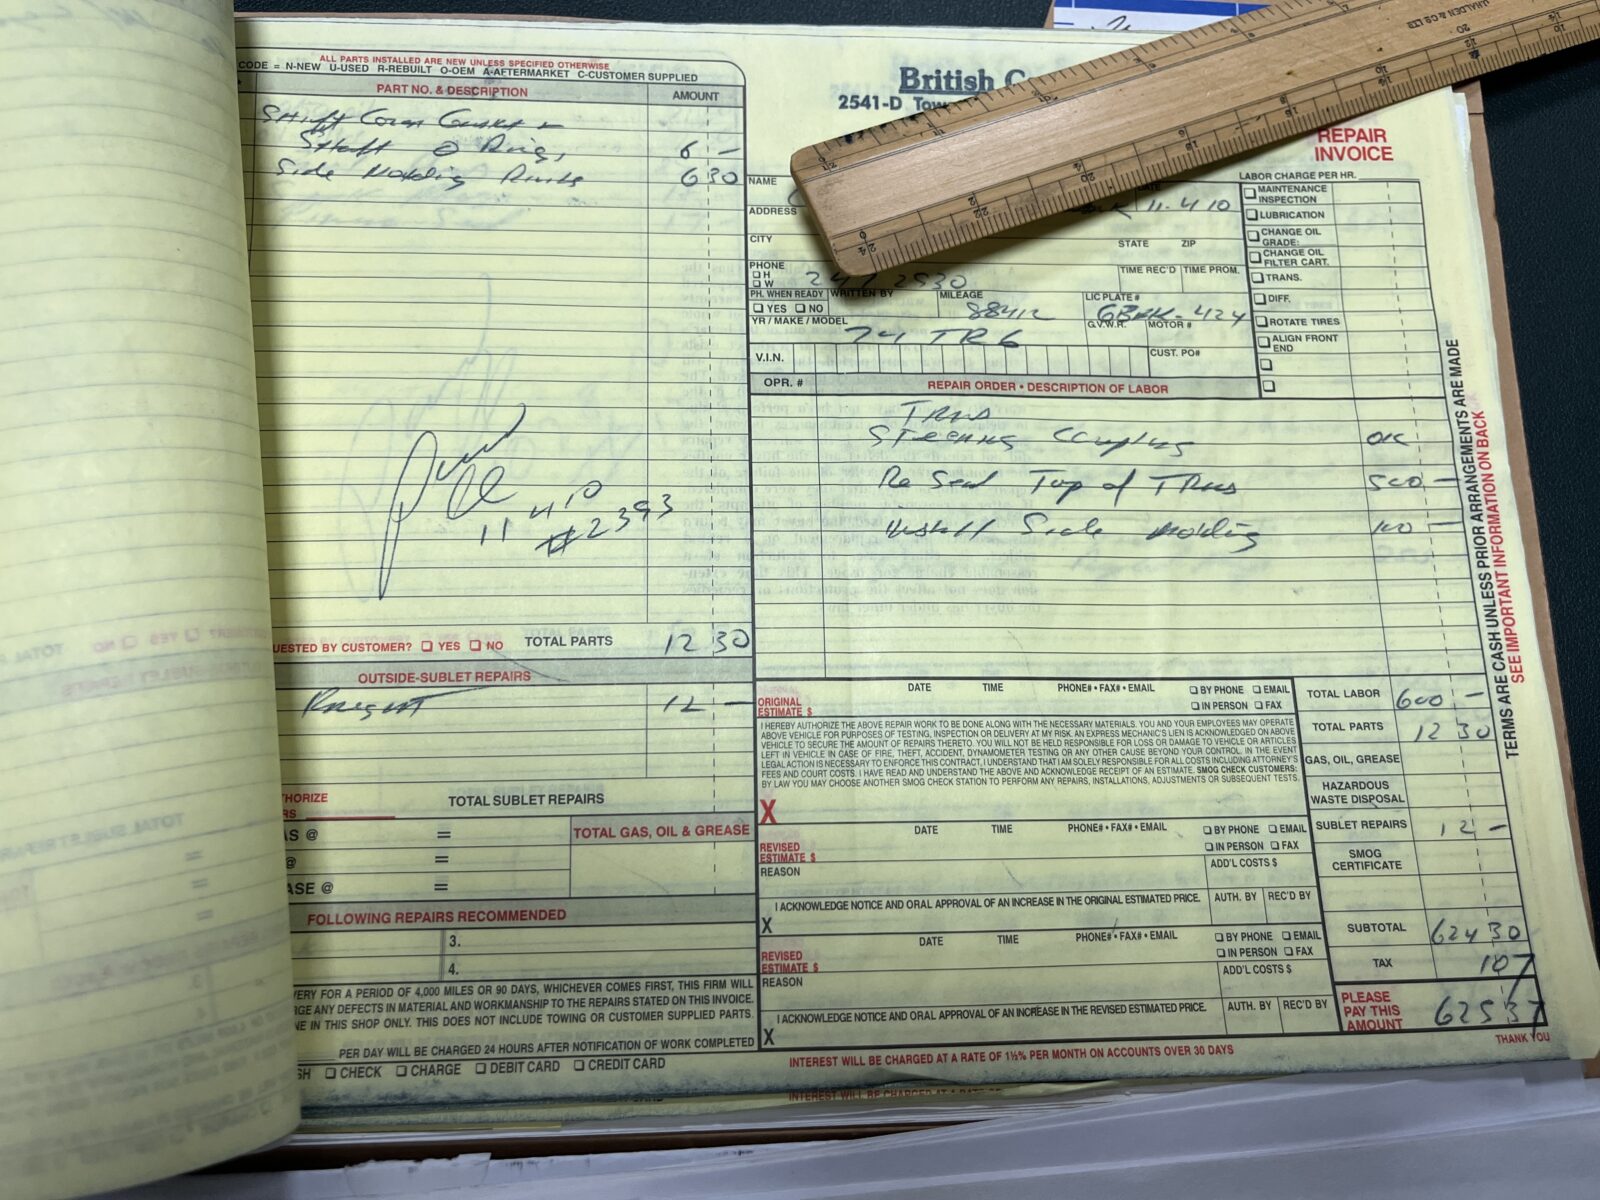 ALL PARTS INSTALLED ARE NEW UNLESS SPECIFIED OTHERWISE
CODE = N-NEW U-USED R-REBUILT O-OEM A-AFTERMARKET C-CUSTOMER SUPPLIED
PART NO. & DESCRIPTION AMOUNT
Shaft O Rings 6 –
Side Molding 6 30
Paid
11 4 10
#2393
UESTED BY CUSTOMER? YES NO TOTAL PARTS 12 30
OUTSIDE-SUBLET REPAIRS
12 –
HORIZE
RS
TOTAL SUBLET REPAIRS
AS @ =
TOTAL GAS, OIL & GREASE
@ =
ASE @ =
FOLLOWING REPAIRS RECOMMENDED
3.
4.
VERY FOR A PERIOD OF 4,000 MILES OR 90 DAYS, WHICHEVER COMES FIRST, THIS FIRM WILL
RGE ANY DEFECTS IN MATERIAL AND WORKMANSHIP TO THE REPAIRS STATED ON THIS INVOICE.
NE IN THIS SHOP ONLY. THIS DOES NOT INCLUDE TOWING OR CUSTOMER SUPPLIED PARTS.
PER DAY WILL BE CHARGED 24 HOURS AFTER NOTIFICATION OF WORK COMPLETED
SH CHECK CHARGE DEBIT CARD CREDIT CARD
British C
2541-D Tow
J.HALDEN & CO LTD
REPAIR
INVOICE
NAME
DATE
11-4 10
ADDRESS
CITY STATE ZIP
PHONE
H
W
2930
TIME REC'D TIME PROM.
PH. WHEN READY
YES NO
WRITTEN BY
MILEAGE
88412
LIC PLATE #
424
YR / MAKE / MODEL
74 TR6
G.V.W.R. MOTOR #
V.I.N. CUST. PO#
LABOR CHARGE PER HR.
MAINTENANCE
INSPECTION
LUBRICATION
CHANGE OIL
GRADE:
CHANGE OIL
FILTER CART.
TRANS.
DIFF.
ROTATE TIRES
ALIGN FRONT
END
OPR. # REPAIR ORDER • DESCRIPTION OF LABOR
Trans
Steering Coupling OK
Re Seal Top of Trans 500 –
Install Side Molding 100 –
TERMS ARE CASH UNLESS PRIOR ARRANGEMENTS ARE MADE
SEE IMPORTANT INFORMATION ON BACK
ORIGINAL
ESTIMATE $
DATE TIME PHONE# • FAX# • EMAIL
BY PHONE EMAIL
IN PERSON FAX
I HEREBY AUTHORIZE THE ABOVE REPAIR WORK TO BE DONE ALONG WITH THE NECESSARY MATERIALS. YOU AND YOUR EMPLOYEES MAY OPERATE
ABOVE VEHICLE FOR PURPOSES OF TESTING, INSPECTION OR DELIVERY AT MY RISK. AN EXPRESS MECHANIC'S LIEN IS ACKNOWLEDGED ON ABOVE
VEHICLE TO SECURE THE AMOUNT OF REPAIRS THERETO. YOU WILL NOT BE HELD RESPONSIBLE FOR LOSS OR DAMAGE TO VEHICLE OR ARTICLES
LEFT IN VEHICLE IN CASE OF FIRE, THEFT, ACCIDENT, DYNAMOMETER TESTING OR ANY OTHER CAUSE BEYOND YOUR CONTROL. IN THE EVENT
LEGAL ACTION IS NECESSARY TO ENFORCE THIS CONTRACT, I UNDERSTAND THAT I AM SOLELY RESPONSIBLE FOR ALL COSTS INCLUDING ATTORNEY'S
FEES AND COURT COSTS. I HAVE READ AND UNDERSTAND THE ABOVE AND ACKNOWLEDGE RECEIPT OF AN ESTIMATE. SMOG CHECK CUSTOMERS:
BY LAW YOU MAY CHOOSE ANOTHER SMOG CHECK STATION TO PERFORM ANY REPAIRS, INSTALLATIONS, ADJUSTMENTS OR SUBSEQUENT TESTS.
X
REVISED
ESTIMATE $
DATE TIME PHONE# • FAX# • EMAIL
BY PHONE EMAIL
IN PERSON FAX
REASON
ADD'L COSTS $
I ACKNOWLEDGE NOTICE AND ORAL APPROVAL OF AN INCREASE IN THE ORIGINAL ESTIMATED PRICE.
AUTH. BY REC'D BY
X
REVISED
ESTIMATE $
DATE TIME PHONE# • FAX# • EMAIL
BY PHONE EMAIL
IN PERSON FAX
REASON
ADD'L COSTS $
I ACKNOWLEDGE NOTICE AND ORAL APPROVAL OF AN INCREASE IN THE REVISED ESTIMATED PRICE.
AUTH. BY REC'D BY
X
TOTAL LABOR 600 –
TOTAL PARTS 12 30
GAS, OIL, GREASE
HAZARDOUS
WASTE DISPOSAL
SUBLET REPAIRS 12 –
SMOG
CERTIFICATE
SUBTOTAL 624 30
TAX 1 07
PLEASE
PAY THIS
AMOUNT
625 37
THANK YOU
INTEREST WILL BE CHARGED AT A RATE OF 1½% PER MONTH ON ACCOUNTS OVER 30 DAYS